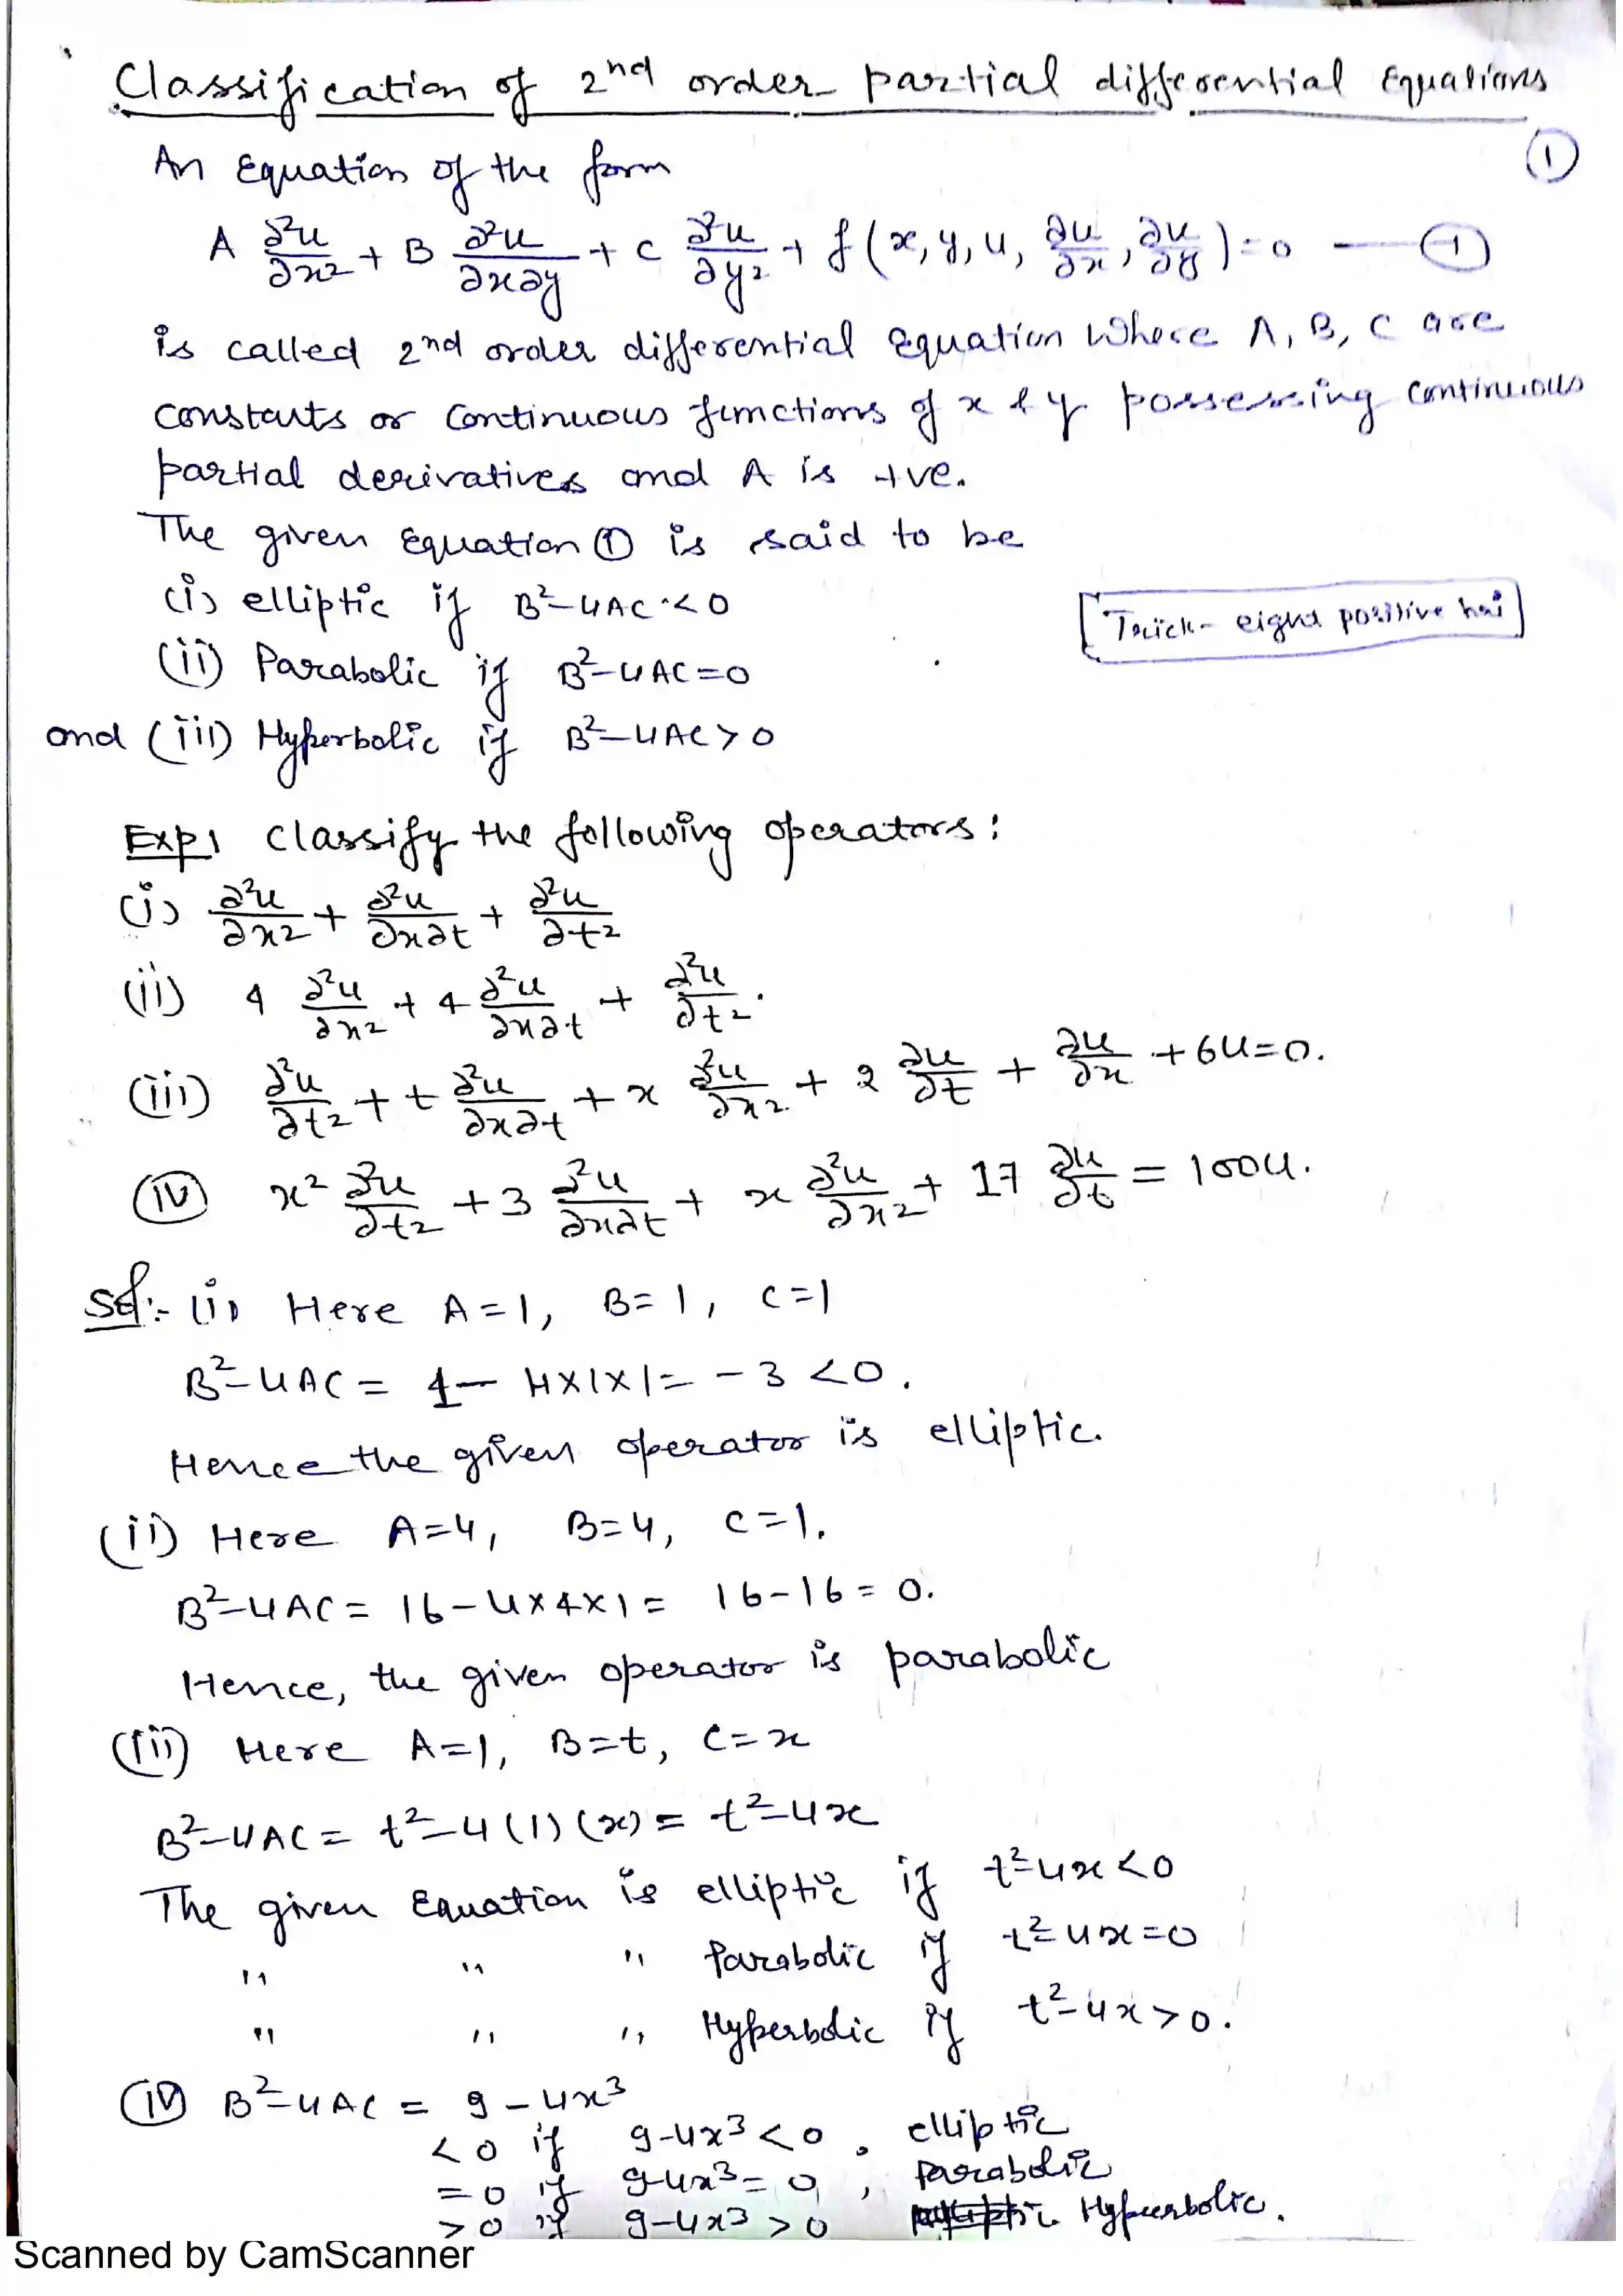 Classification of 2nd order partial differential Equations
①
An Equation of the form
A ∂²u/∂x² + B ∂²u/∂x∂y + C ∂²u/∂y² + f(x, y, u, ∂u/∂x, ∂u/∂y) = 0 — ①
is called 2nd order differential equation where A, B, C are
constants or continuous functions of x & y possessing continuous
partial derivatives and A is +ve.
The given Equation ① is said to be
(i) elliptic if B²-4AC < 0
Trick- eight positive hai
(ii) Parabolic if B²-4AC = 0
and (iii) Hyperbolic if B²-4AC > 0
Exp1 classify the following operators:
(i) ∂²u/∂x² + ∂²u/∂x∂t + ∂²u/∂t²
(ii) 4 ∂²u/∂x² + 4 ∂²u/∂x∂t + ∂²u/∂t².
(iii) ∂²u/∂t² + t ∂²u/∂x∂t + x ∂²u/∂x² + 2 ∂u/∂t + ∂u/∂x + 6u=0.
(iv) x² ∂²u/∂t² + 3 ∂²u/∂x∂t + x ∂²u/∂x² + 17 ∂u/∂t = 100u.
Sol:- (i) Here A=1, B=1, C=1
B²-4AC = 1 - 4×1×1 = -3 <0.
Hence the given operator is elliptic.
(ii) Here A=4, B=4, C=1.
B²-4AC = 16-4×4×1 = 16-16 = 0.
Hence, the given operator is parabolic
(iii) Here A=1, B=t, C=x
B²-4AC = t²-4(1)(x) = t²-4x
The given Equation is elliptic if t²-4x<0
" " " Parabolic if t²-4x=0
" " " Hyperbolic if t²-4x>0.
(iv) B²-4AC = 9-4x³
<0 if 9-4x³<0, elliptic
=0 if 9-4x³=0, Parabolic
>0 if 9-4x³>0 Hyperbolic.
Scanned by CamScanner